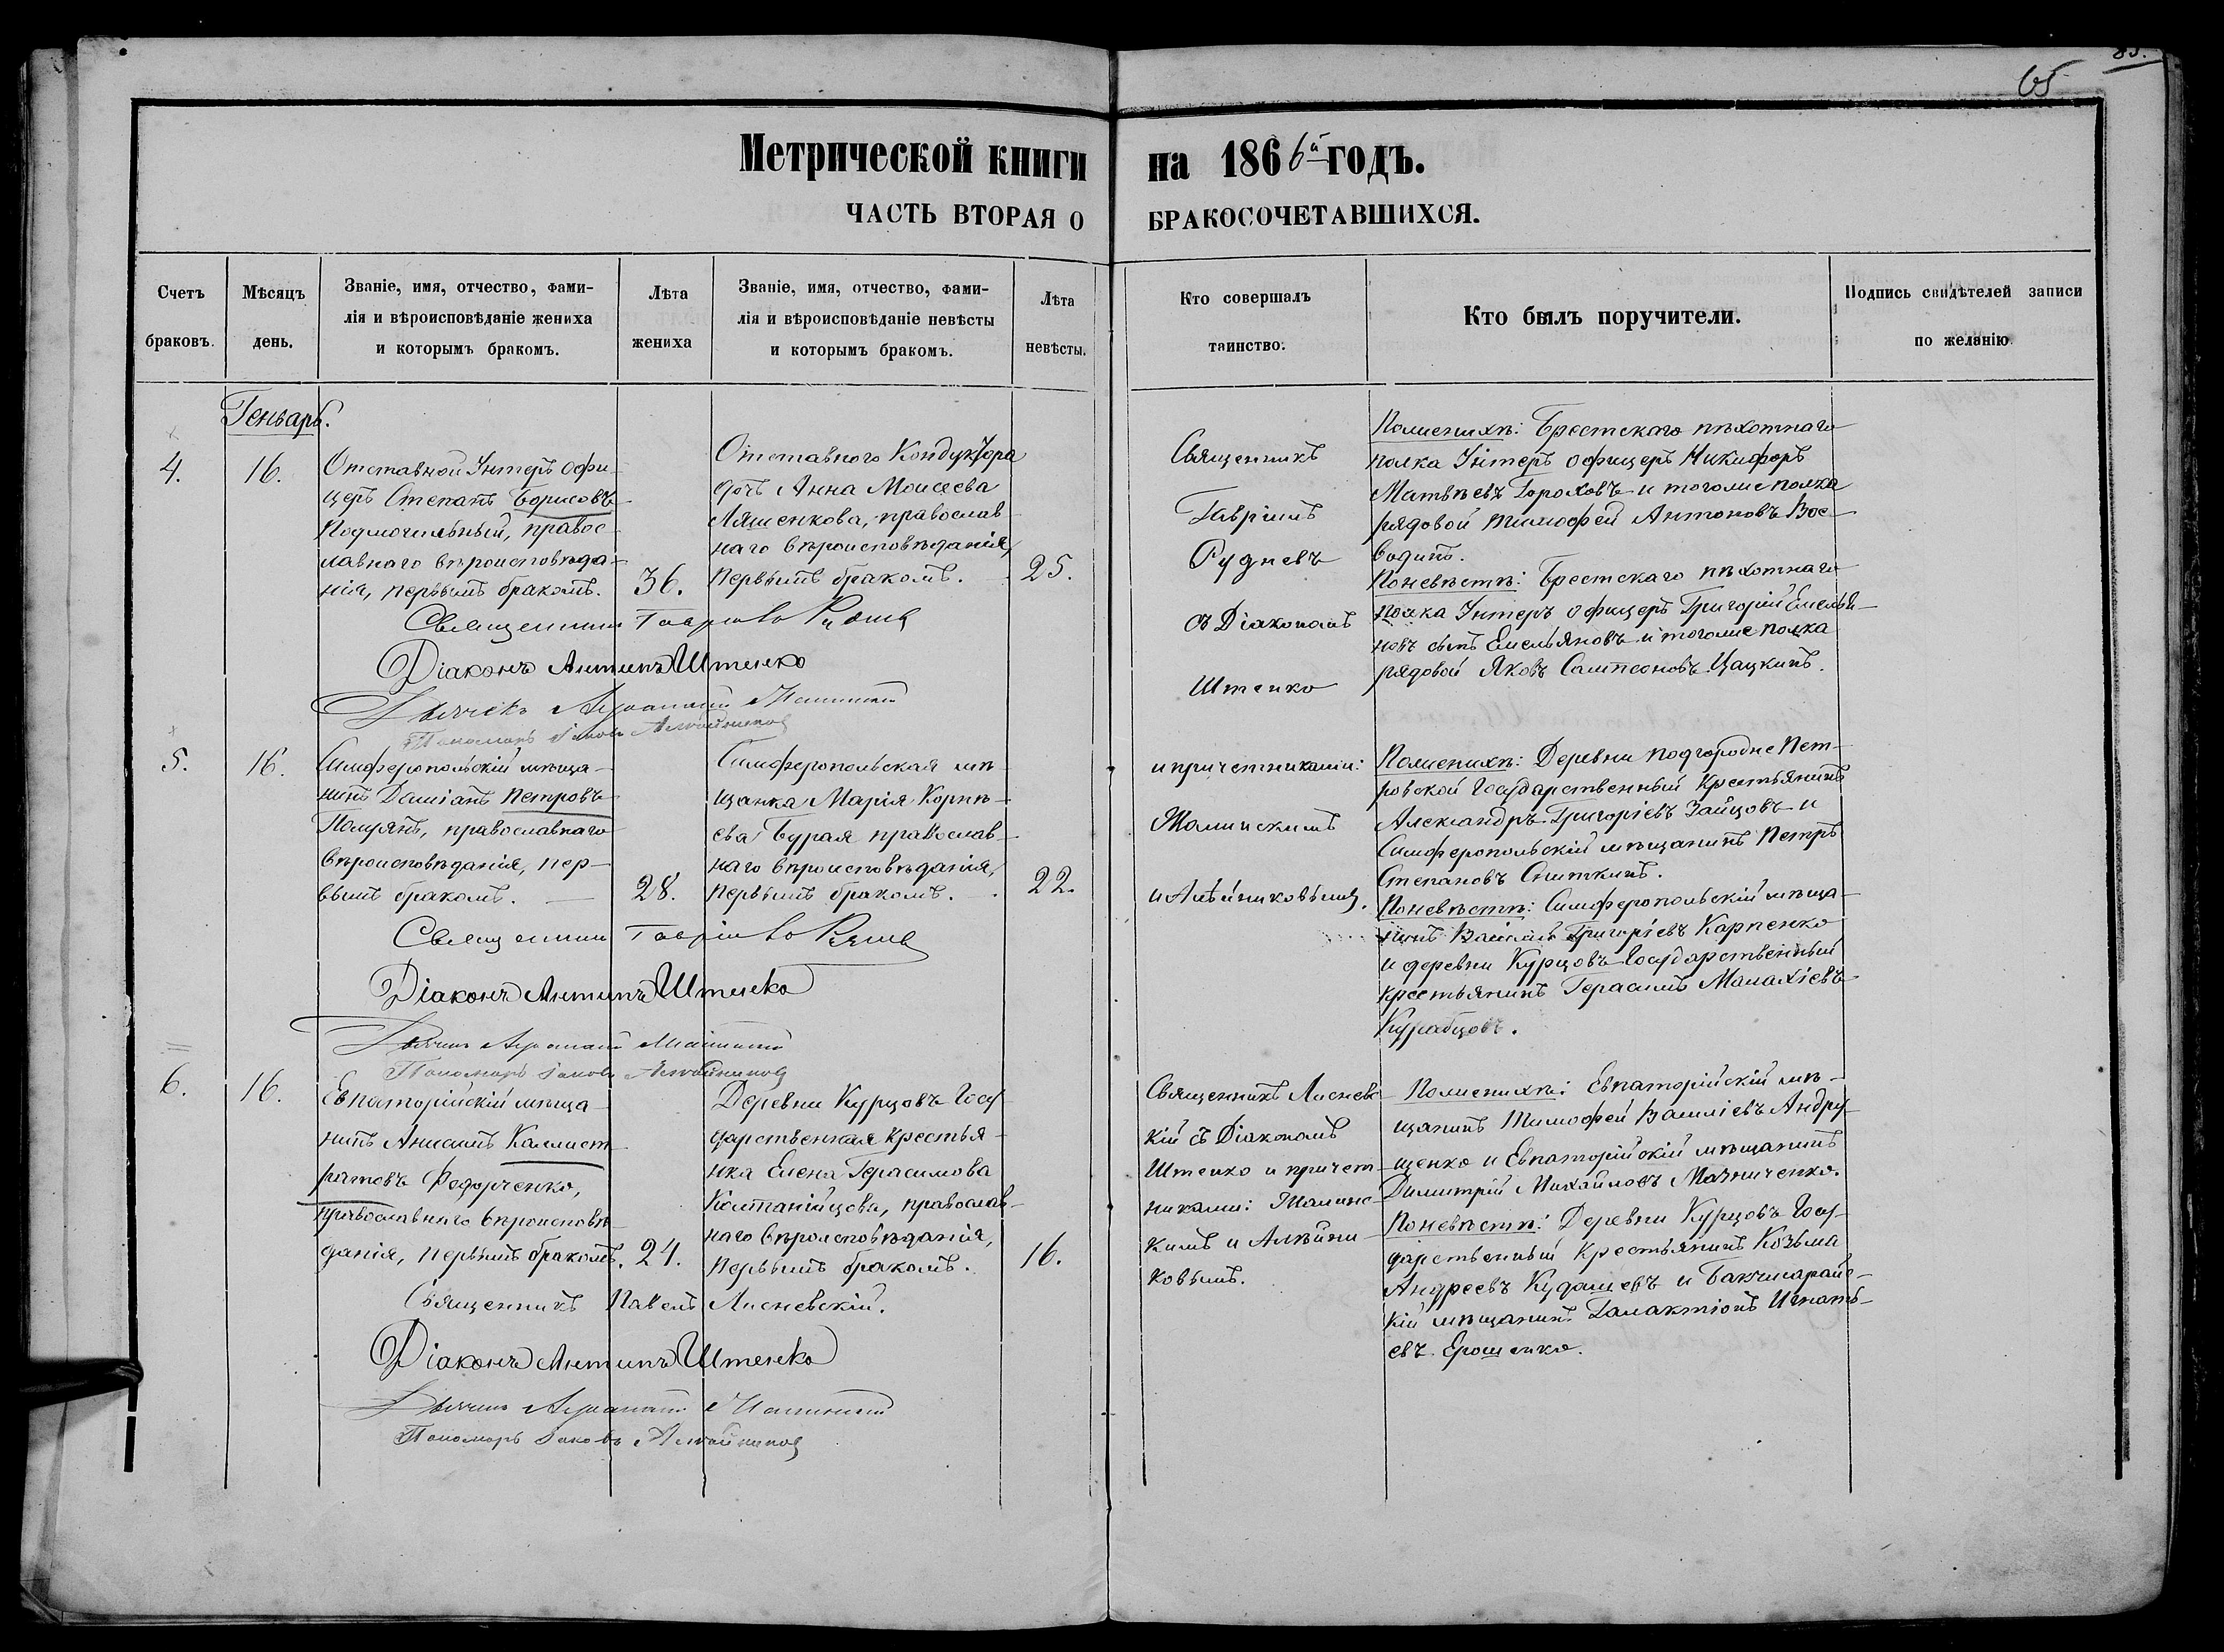 65
Метрической книги на 1866й годъ.
ЧАСТЬ ВТОРАЯ О БРАКОСОЧЕТАВШИХСЯ.
Счетъ
браковъ.
Мѣсяцъ
день.
Званіе, имя, отчество, фами-
лія и вѣроисповѣданіе жениха
и которымъ бракомъ.
Лѣта
жениха
Званіе, имя, отчество, фами-
лія и вѣроисповѣданіе невѣсты
и которымъ бракомъ.
Лѣта
невѣсты.
Кто совершалъ
таинство.
Кто былъ поручители.
Подпись свидѣтелей записи
по желанію.
Генварь.
4.
16.
Отставной Унтеръ офи-
церъ Степанъ Борисовъ
Подмогильный, правос-
лавнаго вѣроисповѣда-
нія, первымъ бракомъ.
36.
Отставного Кондуктора
дочь Анна Моисеева
Ляшенкова, православ
наго вѣроисповѣданія,
первымъ бракомъ.
25.
Священникъ
Гавріилъ
Рудневъ
съ Діакономъ
Штенко
По женихѣ: Брестскаго пѣхотнаго
полка Унтеръ офицеръ Никифоръ
Матвѣевъ Гороховъ и тогоже полка
рядовой Тимофей Антоновъ Вое-
водинъ.
По невѣстѣ: Брестскаго пѣхотнаго
полка Унтеръ офицеръ Григорій Емелья-
новъ сынъ Емельяновъ и тогоже полка
рядовой Яковъ Сампсоновъ Цацкинъ.
Священникъ Гавріилъ
Діаконъ Антипъ Штенко
Пономарь Яковъ Алейниковъ
5.
16.
Симферопольскій мѣща-
нинъ Даміанъ Петровъ
православнаго
вѣроисповѣданія, пер-
вымъ бракомъ.
28.
Симферопольская мѣ-
щанка Марія Корнѣ-
ева Бурая православ-
наго вѣроисповѣданія,
первымъ бракомъ.
22.
и причетниками:
и Алейниковымъ.
По женихѣ: Деревни подгородне Пет-
ровской Государственный Крестьянинъ
Александръ Григоріевъ Зайцовъ и
Симферопольскій мѣщанинъ Петръ
Степановъ Сниткинъ.
По невѣстѣ: Симферопольскій мѣща-
нинъ Василій Григоріевъ Карпенко
и деревни Курцовъ Государственный
крестьянинъ Герасимъ Малахіевъ
Священникъ Гавріилъ
Діаконъ Антипъ Штенко
Пономарь Яковъ Алейниковъ
6.
16.
Евпаторійскій мѣща-
нинъ Анисимъ Каллист-
ратовъ Федорченко,
православнаго вѣроисповѣ-
данія, первымъ бракомъ.
24.
Деревни Курцовъ Госу-
дарственная крестья-
нка Елена Герасимова
Компанійцова, православ-
наго вѣроисповѣданія,
первымъ бракомъ.
16.
Священникъ Лисневс-
кій съ Діакономъ
Штенко и причет-
никами:
кимъ и Алейни-
ковымъ.
По женихѣ: Евпаторійскій мѣ-
щанинъ Тимофей Василіевъ Андру-
щенко и Евпаторійскій мѣщанинъ
Димитрій Михайловъ
По невѣстѣ: Деревни Курцовъ Госу-
дарственный Крестьянинъ Козьма
Андреевъ Кудашевъ и Бахчисарайс-
кій мѣщанинъ Галактіонъ Игнать-
евъ Ерошенко.
Священникъ Павелъ Лисневскій.
Діаконъ Антипъ Штенко
Пономарь Яковъ Алейниковъ